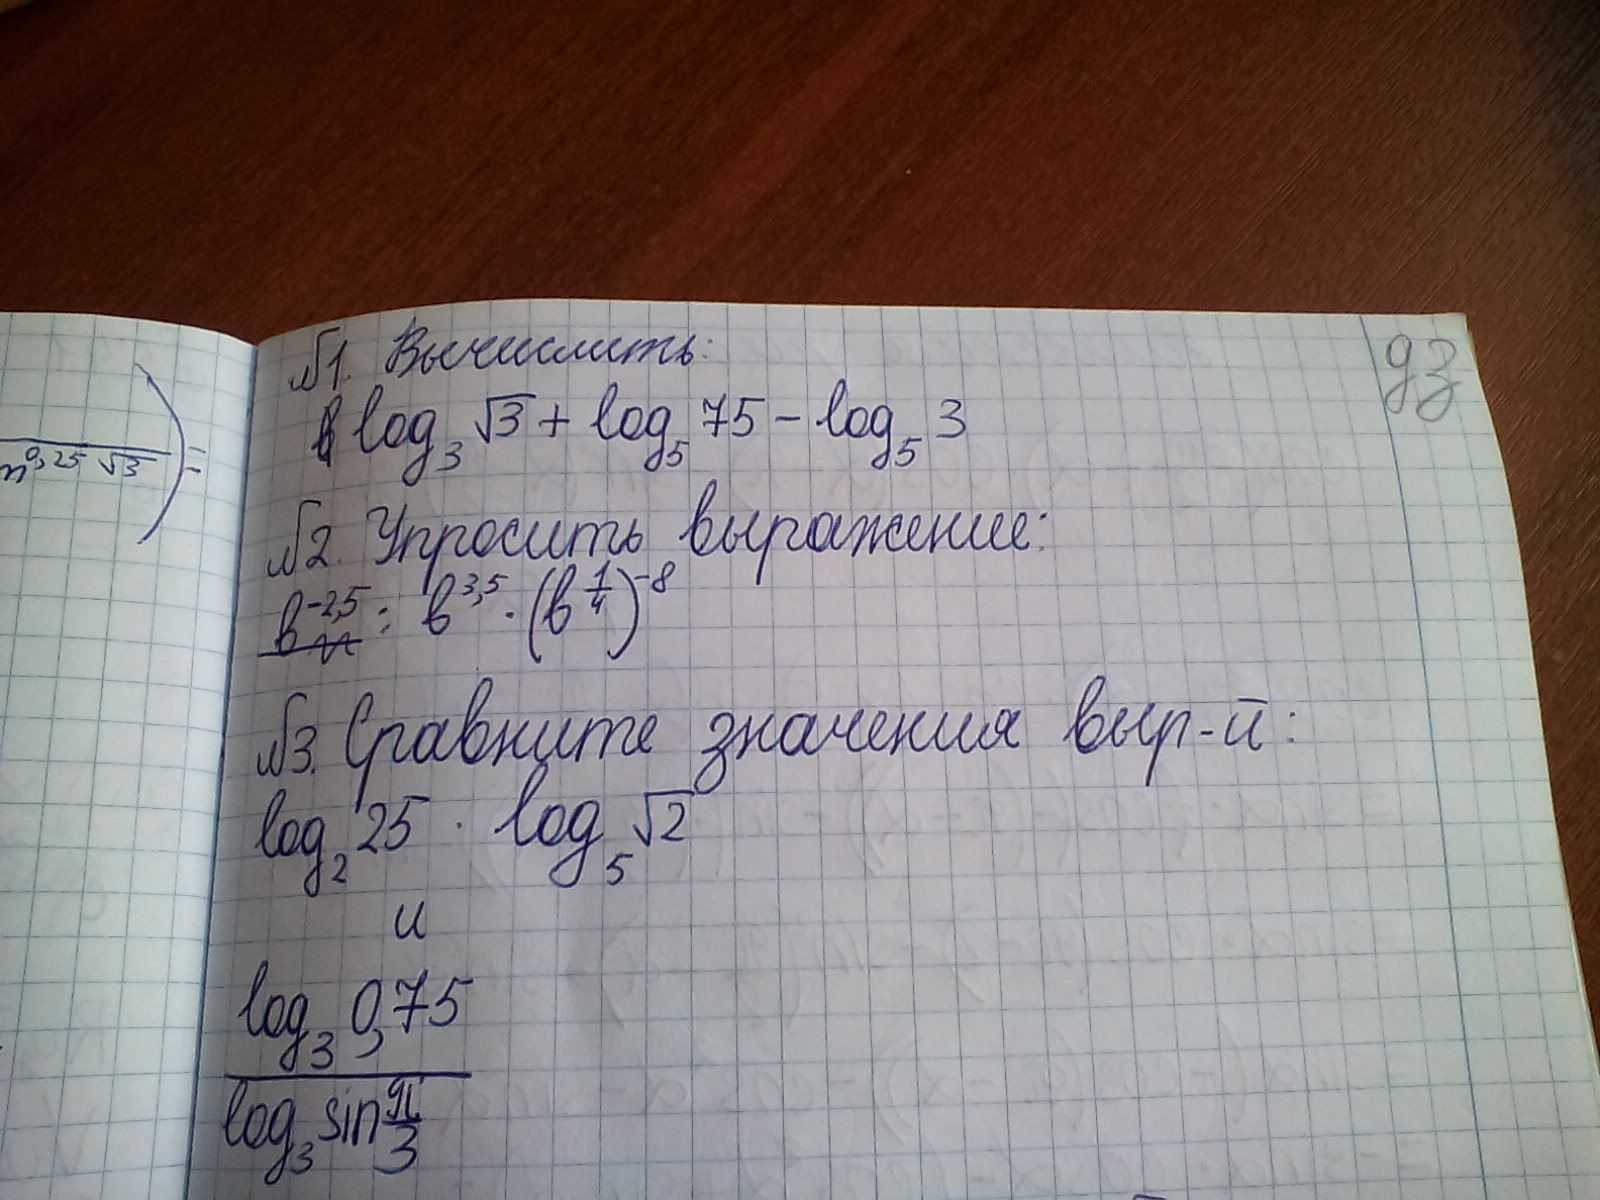 n^0,25 √3 ) =
дз
№1. Вычислить:
log₃ √3 + log₅ 75 - log₅ 3
№2. Упросить выражение:
в^-2,5 : в^3,5 · (в^1/4)^-8
№3. Сравните значения выр-й:
log₂ 25 · log₅ √2
и
log₃ 0,75
log₃ sin π/3